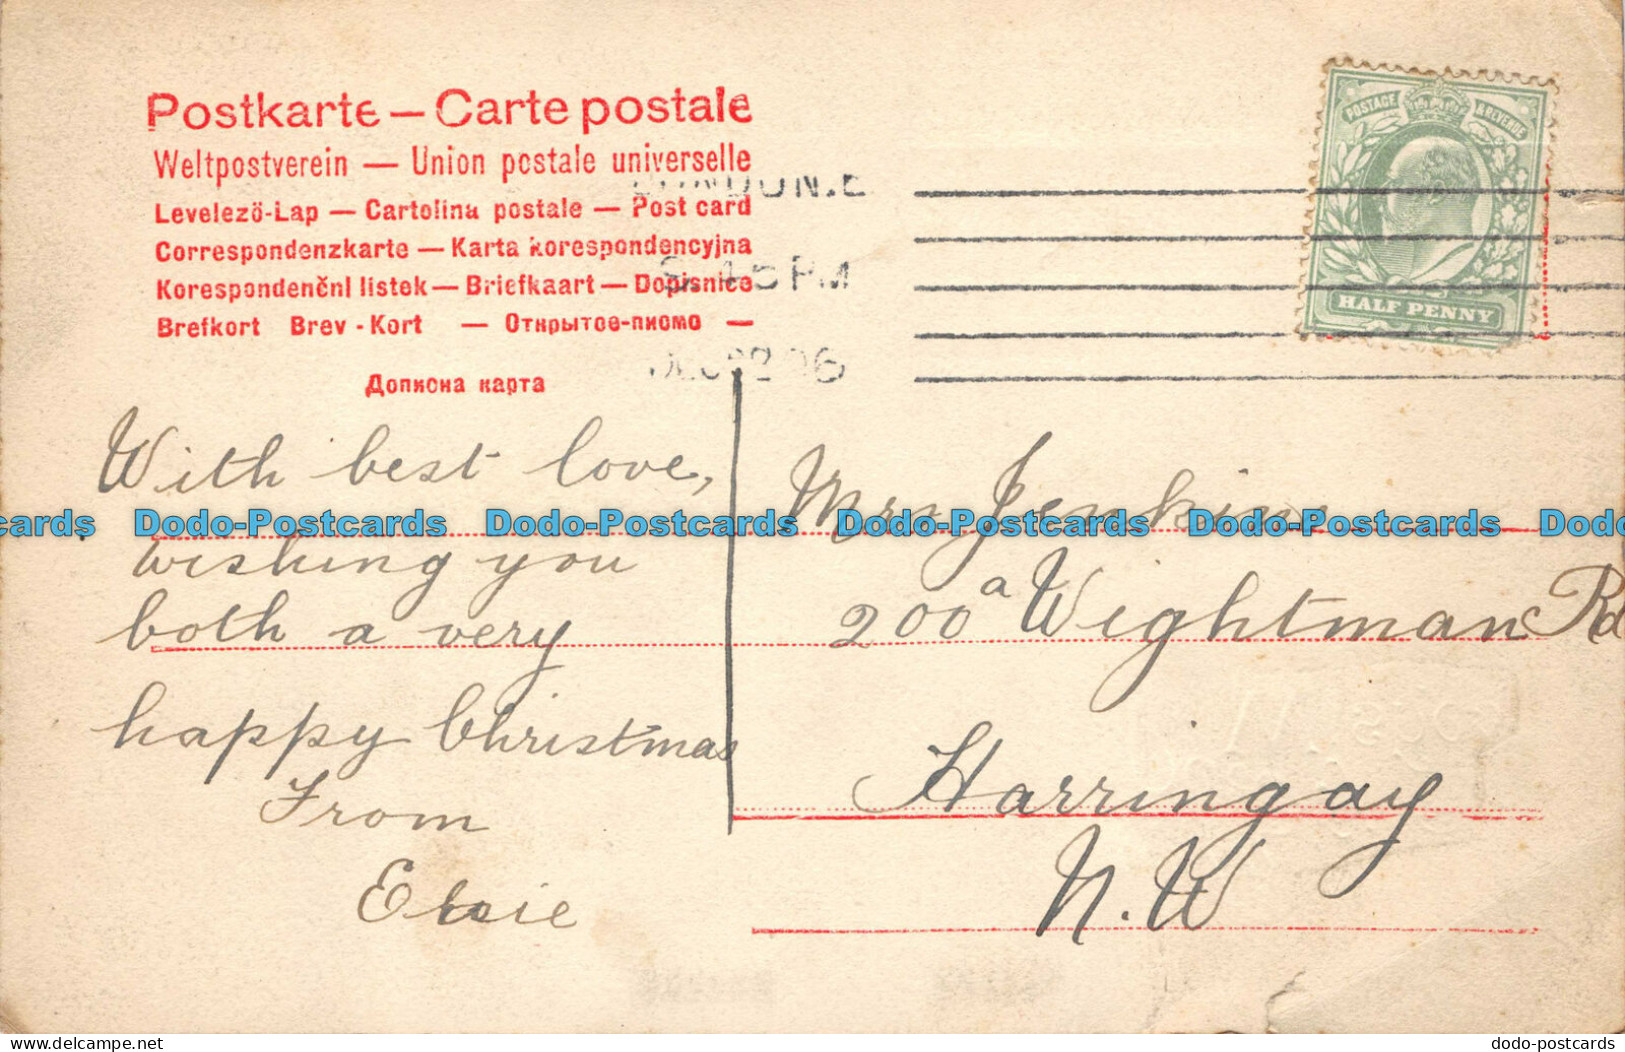 Postkarte — Carte postale
Weltpostverein — Union postale universelle
Levelezö-Lap — Cartolina postale — Post card
Correspondenzkarte — Karta korespondencyjna
Korespondenčnl listek — Briefkaart — Dopisnice
Brefkort Brev - Kort — Открытое-письмо —
Дописна карта
LONDON.E
8.45 PM
DEC 22 06
POSTAGE & REVENUE
HALF PENNY
With best love,
wishing you
both a very
happy Christmas
From
Elsie
Mrs Jenkins
200a Wightman Rd
Harringay
N.W
cards Dodo-Postcards Dodo-Postcards Dodo-Postcards Dodo-Postcards Dodo
www.dodo-postcards.com
dodo-postcards